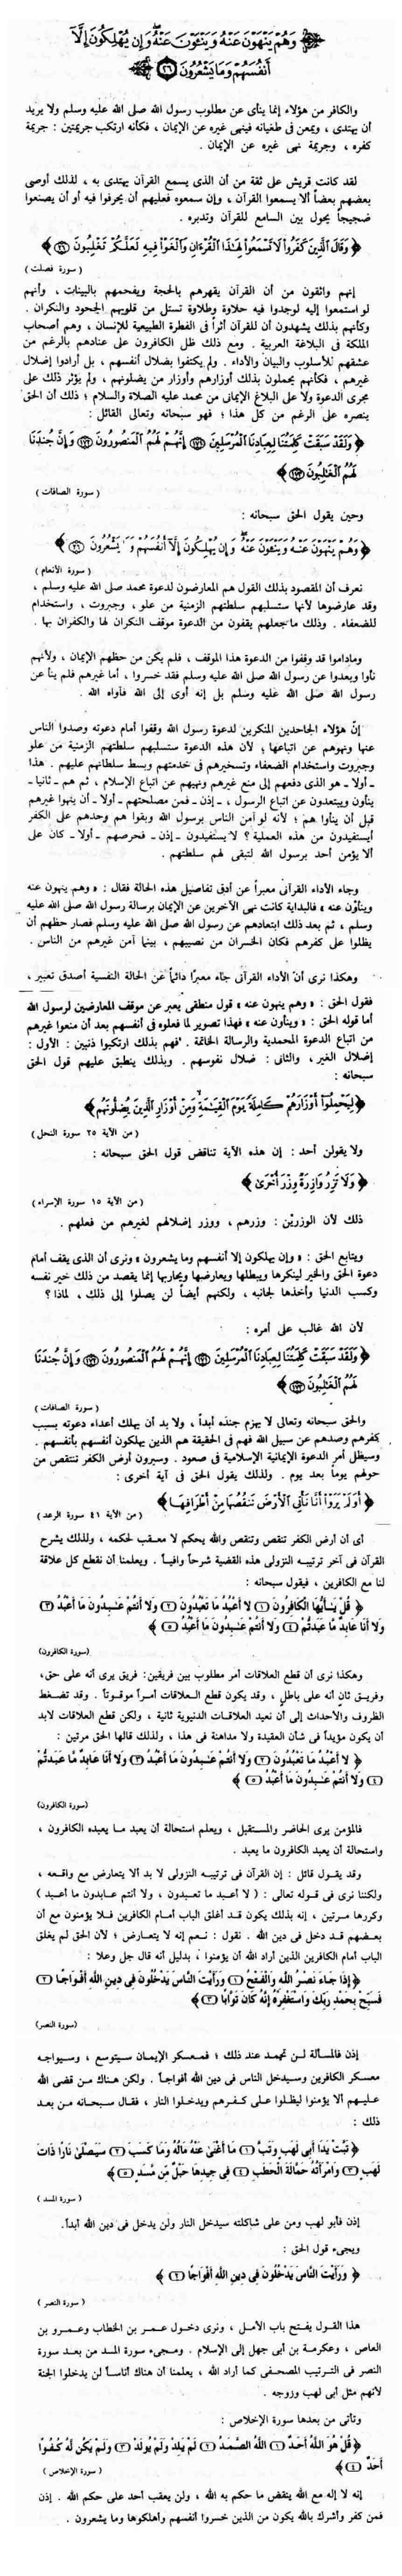 ﴿ وَهُمْ يَنْهَوْنَ عَنْهُ وَيَنْـَٔوْنَ عَنْهُ وَإِن يُهْلِكُونَ إِلَّآ
أَنفُسَهُمْ وَمَا يَشْعُرُونَ ﴿٢٦﴾ ﴾
والكافر من هؤلاء إنما ينأى عن مطلوب رسول الله صلى الله عليه وسلم ولا يريد
أن يهتدى ، ويمعن فى طغيانه فينهى غيره عن الإيمان ، فكأنه ارتكب جريمتين : جريمة
كفره ، وجريمة نهى غيره عن الإيمان .
لقد كانت قريش على ثقة من أن الذى يسمع القرآن يهتدى به ، لذلك أوصى
بعضهم بعضاً ألا يسمعوا القرآن ، وإن سمعوه فعليهم أن يحرفوا فيه أو أن يصنعوا
ضجيجاً يحول بين السامع للقرآن وتدبره .
﴿ وَقَالَ الَّذِينَ كَفَرُوا لَا تَسْمَعُوا لِهَٰذَا الْقُرْءَانِ وَالْغَوْا فِيهِ لَعَلَّكُمْ تَغْلِبُونَ ﴿٢٦﴾ ﴾
( سورة فصلت )
إنهم واثقون من أن القرآن يقهرهم بالحجة ويفحمهم بالبينات ، وأنهم
لو استمعوا إليه لوجدوا فيه حلاوة وطلاوة تستل من قلوبهم الجحود والنكران .
وكأنهم بذلك يشهدون أن للقرآن أثراً فى الفطرة الطبيعية للإنسان ، وهم أصحاب
الملكة فى البلاغة العربية . ومع ذلك ظل الكافرون على عنادهم بالرغم من
عشقهم للأسلوب والبيان والأداء . ولم يكتفوا بضلال أنفسهم ، بل أرادوا إضلال
غيرهم ، فكأنهم يحملون بذلك أوزارهم وأوزار من يضلونهم ، ولم يؤثر ذلك على
مجرى الدعوة ولا على البلاغ الإيمانى من محمد عليه الصلاة والسلام ؛ ذلك أن الحق
ينصره على الرغم من كل هذا ؛ فهو سبحانه وتعالى القائل :
﴿ وَلَقَدْ سَبَقَتْ كَلِمَتُنَا لِعِبَادِنَا الْمُرْسَلِينَ ﴿١٧١﴾ إِنَّهُمْ لَهُمُ الْمَنصُورُونَ ﴿١٧٢﴾ وَإِنَّ جُندَنَا
لَهُمُ الْغَٰلِبُونَ ﴿١٧٣﴾ ﴾
( سورة الصافات )
وحين يقول الحق سبحانه :
﴿ وَهُمْ يَنْهَوْنَ عَنْهُ وَيَنْـَٔوْنَ عَنْهُ وَإِن يُهْلِكُونَ إِلَّآ أَنفُسَهُمْ وَمَا يَشْعُرُونَ ﴿٢٦﴾ ﴾
( سورة الأنعام )
نعرف أن المقصود بذلك القول هم المعارضون لدعوة محمد صلى الله عليه وسلم ،
وقد عارضوها لأنها ستسلبهم سلطتهم الزمنية من علو ، وجبروت ، واستخدام
للضعفاء . وذلك ما جعلهم يقفون من الدعوة موقف النكران لها والكفران بها .
وماداموا قد وقفوا من الدعوة هذا الموقف ، فلم يكن من حظهم الإيمان ، ولأنهم
نأوا وبعدوا عن رسول الله صلى الله عليه وسلم فقد خسروا ، أما غيرهم فلم ينأ عن
رسول الله صلى الله عليه وسلم بل إنه أوى إلى الله فآواه الله .
إنَّ هؤلاء الجاحدين المنكرين لدعوة رسول الله وقفوا أمام دعوته وصدوا الناس
عنها ونهوهم عن اتباعها ؛ لأن هذه الدعوة ستسلبهم سلطتهم الزمنية من علو
وجبروت واستخدام الضعفاء وتسخيرهم فى خدمتهم وبسط سلطانهم عليهم . هذا
ـ أولا ـ هو الذى دفعهم إلى منع غيرهم ونهيهم عن اتباع الإسلام ، ثم هم ـ ثانيا ـ
ينأون ويبتعدون عن اتباع الرسول ، ـ إذن ـ فمن مصلحتهم ـ أولا ـ أن ينهوا غيرهم
قبل أن ينأوا هم ؛ لأنه لو آمن الناس برسول الله وبقوا هم وحدهم على الكفر
أيستفيدون من هذه العملية ؟ لا يستفيدون ـ إذن ـ فحرصهم ـ أولا ـ كان على
ألا يؤمن أحد برسول الله لتبقى لهم سلطتهم .
وجاء الأداء القرآنى معبراً عن أدق تفاصيل هذه الحالة فقال : « وهم ينهون عنه
وينأون عنه » فالبداية كانت نهى الآخرين عن الإيمان برسالة رسول الله صلى الله عليه
وسلم ، ثم بعد ذلك ابتعادهم عن رسول الله صلى الله عليه وسلم فصار حظهم أن
يظلوا على كفرهم فكان الخسران من نصيبهم ، بينما آمن غيرهم من الناس .
وهكذا نرى أن الأداء القرآنى جاء معبرًا دائماً عن الحالة النفسية أصدق تعبير ،
فقول الحق : « وهم ينهون عنه » قول منطقى يعبر عن موقف المعارضين لرسول الله
أما قوله الحق : « وينأون عنه » فهذا تصوير لما فعلوه فى أنفسهم بعد أن منعوا غيرهم
من اتباع الدعوة المحمدية والرسالة الخاتمة . فهم بذلك ارتكبوا ذنبين : الأول :
إضلال الغير ، والثانى : ضلال نفوسهم . وبذلك ينطبق عليهم قول الحق
سبحانه :
﴿ لِيَحْمِلُوٓا۟ أَوْزَارَهُمْ كَامِلَةً يَوْمَ الْقِيَٰمَةِ وَمِنْ أَوْزَارِ الَّذِينَ يُضِلُّونَهُم ﴾
( من الآية ٢٥ سورة النحل )
ولا يقولن أحد : إن هذه الآية تناقض قول الحق سبحانه :
﴿ وَلَا تَزِرُ وَازِرَةٌ وِزْرَ أُخْرَىٰ ﴾
( من الآية ١٥ سورة الإسراء )
ذلك لأن الوزريْن : وزرهم ، ووزر إضلالهم لغيرهم من فعلهم .
ويتابع الحق : « وإن يهلكون إلا أنفسهم وما يشعرون » ونرى أن الذى يقف أمام
دعوة الحق والخير لينكرها ويبطلها ويعارضها ويحاربها إنما يقصد من ذلك خير نفسه
وكسب الدنيا وأخذها لجانبه ، ولكنهم أيضاً لن يصلوا إلى ذلك ، لماذا ؟
لأن الله غالب على أمره :
﴿ وَلَقَدْ سَبَقَتْ كَلِمَتُنَا لِعِبَادِنَا الْمُرْسَلِينَ ﴿١٧١﴾ إِنَّهُمْ لَهُمُ الْمَنصُورُونَ ﴿١٧٢﴾ وَإِنَّ جُندَنَا
لَهُمُ الْغَٰلِبُونَ ﴿١٧٣﴾ ﴾
( سورة الصافات )
والحق سبحانه وتعالى لا يهزم جنده أبداً ، ولا بد أن يهلك أعداء دعوته بسبب
كفرهم وصدهم عن سبيل الله فهم فى الحقيقة هم الذين يهلكون أنفسهم بأنفسهم .
وسيظل أمر الدعوة الإيمانية الإسلامية فى صعود . وسيرون أرض الكفر تنتقص من
حولهم يوماً بعد يوم . ولذلك يقول الحق فى آية أخرى :
﴿ أَوَلَمْ يَرَوْا أَنَّا نَأْتِى الْأَرْضَ نَنقُصُهَا مِنْ أَطْرَافِهَا ﴾
( من الآية ٤١ سورة الرعد )
أى أن أرض الكفر تنقص وتنقص والله يحكم لا معقب لحكمه ، ولذلك يشرح
القرآن فى آخر ترتيبه النزولى هذه القضية شرحاً وافياً . ويعلمنا أن نقطع كل علاقة
لنا مع الكافرين ، فيقول سبحانه :
﴿ قُلْ يَٰٓأَيُّهَا الْكَافِرُونَ ﴿١﴾ لَا أَعْبُدُ مَا تَعْبُدُونَ ﴿٢﴾ وَلَا أَنتُمْ عَٰبِدُونَ مَا أَعْبُدُ ﴿٣﴾
وَلَا أَنَا عَابِدٌ مَّا عَبَدتُّمْ ﴿٤﴾ وَلَا أَنتُمْ عَٰبِدُونَ مَا أَعْبُدُ ﴿٥﴾ ﴾
(سورة الكافرون)
وهكذا نرى أن قطع العلاقات أمر مطلوب بين فريقين: فريق يرى أنه على حق،
وفريق ثانٍ أنه على باطلٍ ، وقد يكون قطع العلاقات أمراً موقوتاً . وقد تضغط
الظروف والأحداث إلى أن نعيد العلاقات الدنيوية ثانية ، ولكن قطع العلاقات لابد
أن يكون مؤبداً فى شأن العقيدة ولا مداهنة فى هذا ، ولذلك قالها الحق مرتين :
﴿ لَا أَعْبُدُ مَا تَعْبُدُونَ ﴿٢﴾ وَلَا أَنتُمْ عَٰبِدُونَ مَا أَعْبُدُ ﴿٣﴾ وَلَا أَنَا عَابِدٌ مَّا عَبَدتُّمْ
﴿٤﴾ وَلَا أَنتُمْ عَٰبِدُونَ مَا أَعْبُدُ ﴿٥﴾ ﴾
(سورة الكافرون)
فالمؤمن يرى الحاضر والمستقبل ، ويعلم استحالة أن يعبد ما يعبده الكافرون ،
واستحالة أن يعبد الكافرون ما يعبد .
وقد يقول قائل : إن القرآن فى ترتيبه النزولى لا بد ألا يتعارض مع واقعه ،
ولكننا نرى فى قوله تعالى : ( لا أعبد ما تعبدون ، ولا أنتم عابدون ما أعبد )
وكررها مرتين ، إنه بذلك يكون قد أغلق الباب أمام الكافرين فلا يؤمنون مع أن
بعضهم قد دخل فى دين الله . نقول : نعم إنه لا يتعارض ؛ لأن الحق لم يغلق
الباب أمام الكافرين الذين أراد الله أن يؤمنوا ، بدليل أنه قال جل وعلا :
﴿ إِذَا جَاءَ نَصْرُ اللَّهِ وَالْفَتْحُ ﴿١﴾ وَرَأَيْتَ النَّاسَ يَدْخُلُونَ فِى دِينِ اللَّهِ أَفْوَاجًا ﴿٢﴾
فَسَبِّحْ بِحَمْدِ رَبِّكَ وَاسْتَغْفِرْهُ إِنَّهُ كَانَ تَوَّابًا ﴿٣﴾ ﴾
(سورة النصر)
إذن فالمسألة لن تجمد عند ذلك ؛ فمعسكر الإيمان سيتوسع ، وسيواجه
معسكر الكافرين وسيدخل الناس فى دين الله أفواجاً . ولكن هناك من قضى الله
عليهم ألا يؤمنوا ليظلوا على كفرهم ويدخلوا النار ، فقال سبحانه من بعد
ذلك :
﴿ تَبَّتْ يَدَا أَبِى لَهَبٍ وَتَبَّ ﴿١﴾ مَا أَغْنَىٰ عَنْهُ مَالُهُ وَمَا كَسَبَ ﴿٢﴾ سَيَصْلَىٰ نَارًا ذَاتَ
لَهَبٍ ﴿٣﴾ وَامْرَأَتُهُ حَمَّالَةَ الْحَطَبِ ﴿٤﴾ فِى جِيدِهَا حَبْلٌ مِّن مَّسَدٍ ﴿٥﴾ ﴾
( سورة المسد )
إذن فأبو لهب ومن على شاكلته سيدخل النار ولن يدخل فى دين الله أبداً.
ويجىء قول الحق :
﴿ وَرَأَيْتَ النَّاسَ يَدْخُلُونَ فِى دِينِ اللَّهِ أَفْوَاجًا ﴿٢﴾ ﴾
( سورة النصر )
هذا القول يفتح باب الأمل ، ونرى دخول عمر بن الخطاب وعمرو بن
العاص ، وعكرمة بن أبى جهل إلى الإسلام . ومجىء سورة المسد من بعد سورة
النصر فى الترتيب المصحفى كما أراد الله ، يعلمنا أن هناك أناساً لن يدخلوا الجنة
لأنهم مثل أبى لهب وزوجه .
وتأتى من بعدها سورة الإخلاص :
﴿ قُلْ هُوَ اللَّهُ أَحَدٌ ﴿١﴾ اللَّهُ الصَّمَدُ ﴿٢﴾ لَمْ يَلِدْ وَلَمْ يُولَدْ ﴿٣﴾ وَلَمْ يَكُن لَّهُ كُفُوًا
أَحَدٌ ﴿٤﴾ ﴾
( سورة الإخلاص )
إنه لا إله مع الله ينقض ما حكم به الله ، ولن يعقب أحد على حكم الله . إذن
فمن كفر وأشرك بالله يكون من الذين خسروا أنفسهم وأهلكوها وما يشعرون .